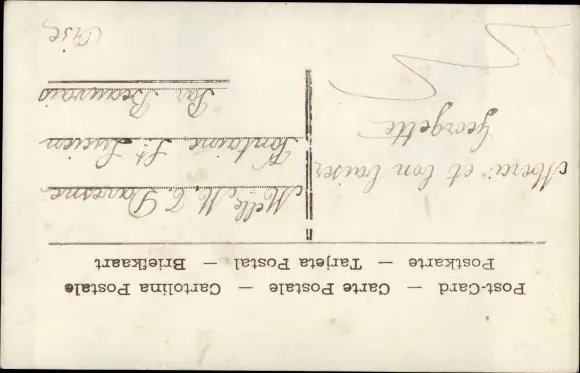 Post-Card — Carte Postale — Cartolina Postale
Postkarte — Tarjeta Postal — Briefkaart
Merci et bon baiser
Georgette
Melle M. T. Davesne
Fontaine St Lucien
Par Beauvais
Oise